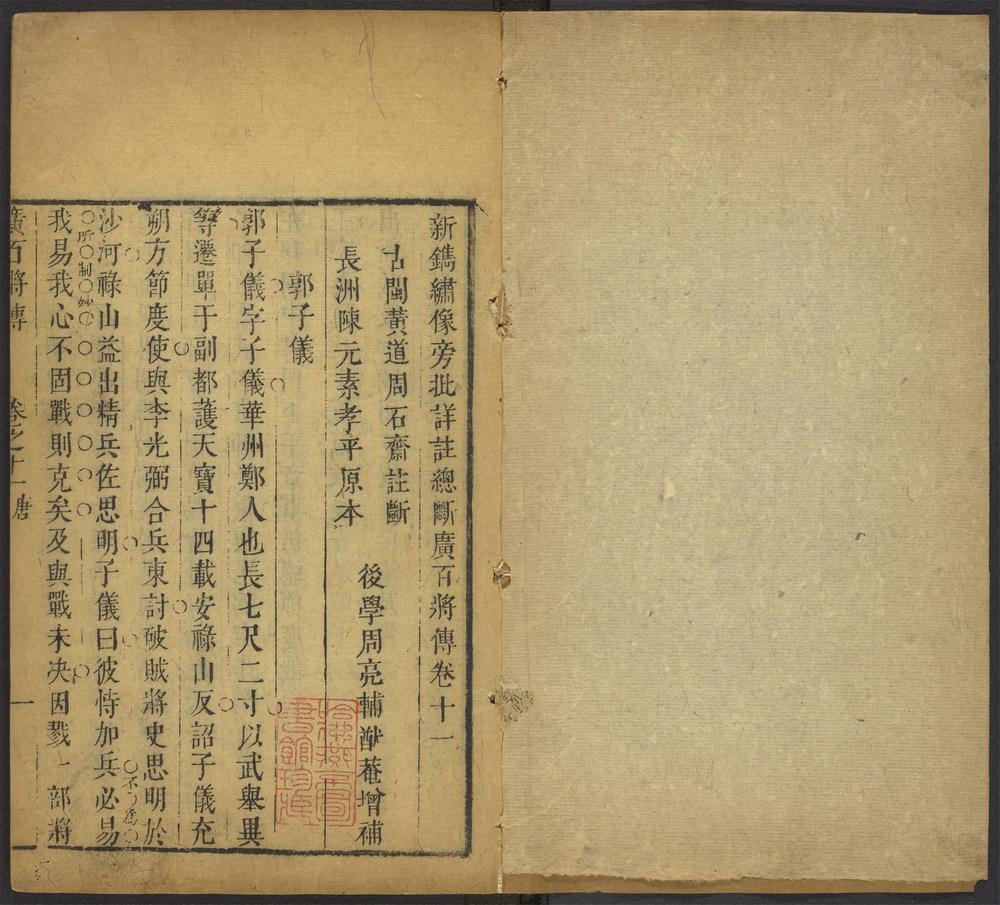 新鐫繡像旁批詳註總斷廣百將傳卷十一
古閩黃道周石齋註斷
長洲陳元素孝平原本
後學周亮輔猷菴增補
郭子儀
郭子儀字子儀華州鄭人也長七尺二寸以武舉異
等遷單于副都護天寶十四載安祿山反詔子儀充
朔方節度使與李光弼合兵東討破賊將史思明於
不可為
沙河祿山益出精兵佐思明子儀曰彼恃加兵必易
所制妙
我易我心不固戰則克矣及與戰未决因戮一部將
廣百將傳 卷之十一 唐 一
哈佛燕京圖書館珍藏